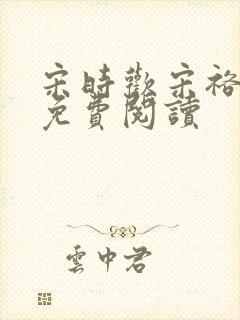 宋時歡宋裕
免費閱讀
雲中君